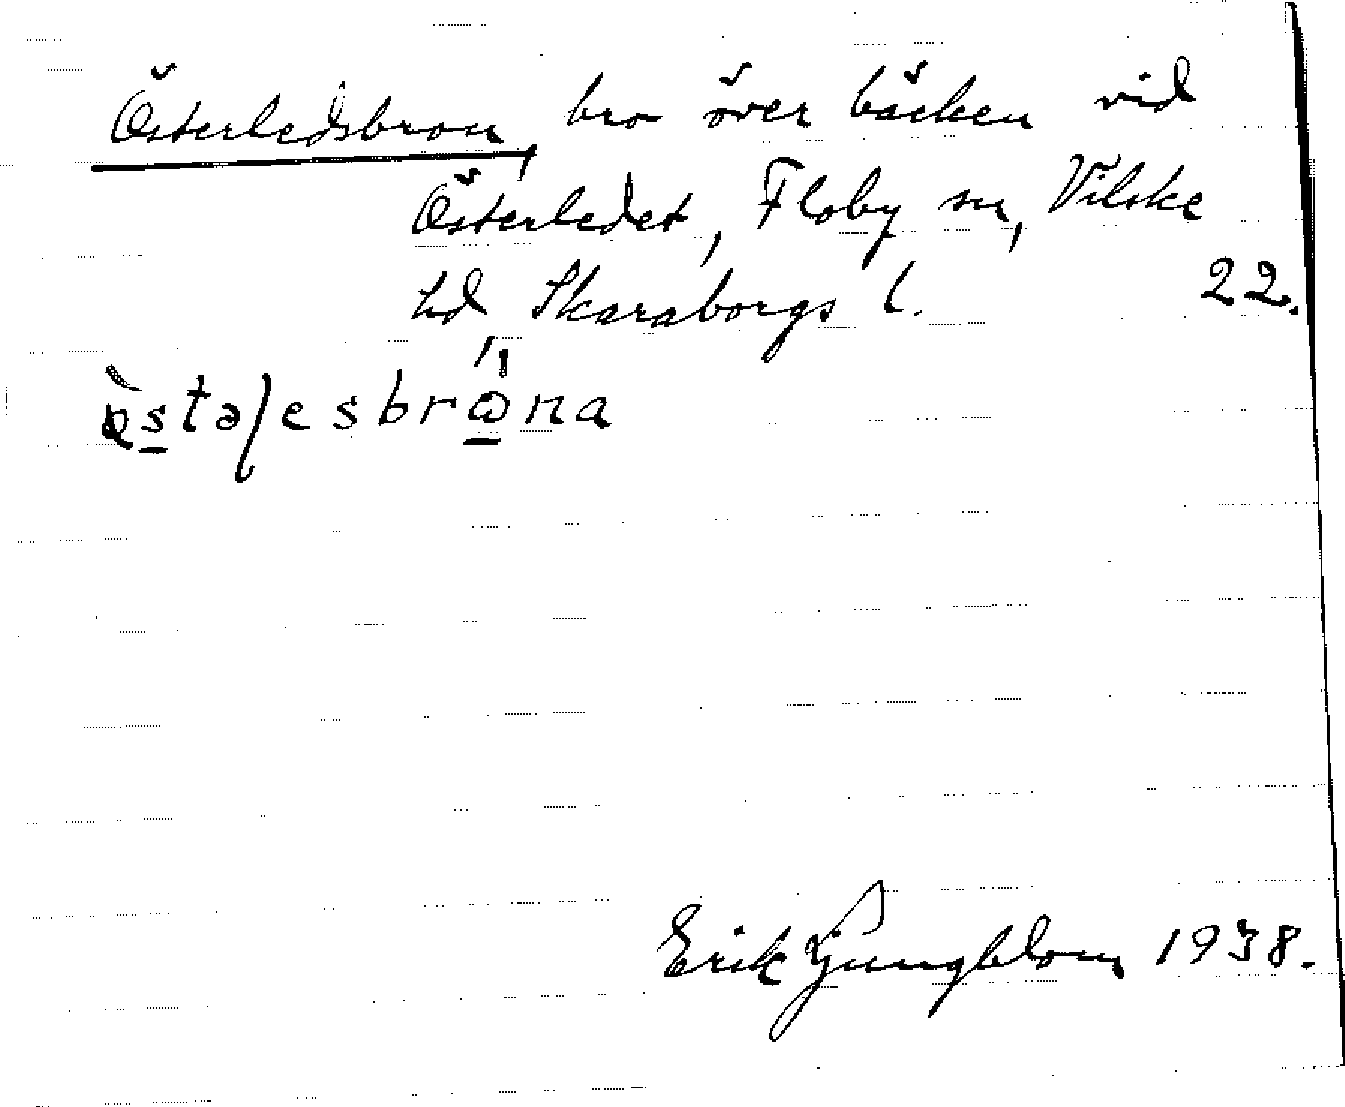 Österledsbron, bro över bäcken vid
Österledet, Floby sn, Vilske
hd Skaraborgs l. 22.
Erik Ljungblom 1938.